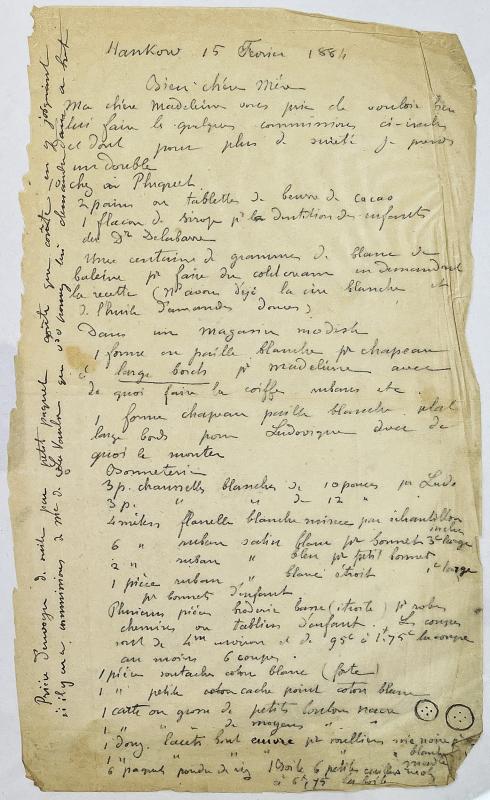 Hankow 15 Fevrier 1884
Bien chère Mère
Ma chère Madeleine vous prie de vouloir bien
lui faire les quelques commissions ci-incluses
et dont pour plus de sureté je prends
un double
chez un Phuquet
2 pains ou tablettes de beurre de cacao
1 flacon de Sirop pr la dentition des enfants
du Dr Delabarre
Une centaine de grammes de blanc de
baleine pr faire du cold cream en demandant
la recette (Ns avons déjà la cire blanche et
de l'huile d'amandes douces)
Dans un magasin modeste
1 forme en paille blanche pr chapeau
à large bords pr Madeleine avec
de quoi faire la coiffe rubans etc.
1 forme chapeau paille blanche plat
large bords pour Ludovique avec de
quoi le monter
Bonneterie
3 p. chaussettes blanches de 10 pouces pr Ludo
3 p. " " de 12 "
4 mètres flanelle blanche mince par échantillon inclus
6 " ruban satin blanc pr bonnet 3e large
2 " ruban " bleu pr petit bonnet 1e large
1 pièce ruban " blanc étroit
pr bonnets d'enfant
Plusieurs pièces broderie basse (étroite) pr robes
chemises ou tabliers d'enfant. Les coupes
sont de 4m environ et de 95c à 1f.75c la coupe
au moins 6 coupes.
1 pièce soutache coton blanc (forte)
1 " petite coton cache point coton blanc
1 carte ou grosse de petits bouton nacre
1 " de moyens " "
1 douz. lacets bout cuivre pr souliers soie noire
1 " " " " blanche
6 paquets poudre de riz 1 boite 6 petites
à 6f,75 la boite
Prière d'envoyer de suite par petit paquet coute que coute en y joignant
s'il y en a commissions de Me de La Touche que vous pourriez lui demander dans ce but